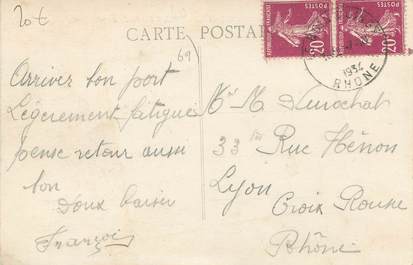 20€
CARTE POSTALE
69
REPUBLIQUE FRANÇAISE POSTES 20c
REPUBLIQUE FRANÇAISE POSTES 20c
1934
RHONE
Arrivez bon port
Légèrement fatigué
pense retour aussi
bon
Doux baiser
François
Mr M Durochat
33 bis Rue Hénon
Lyon
Croix Rousse
Rhône